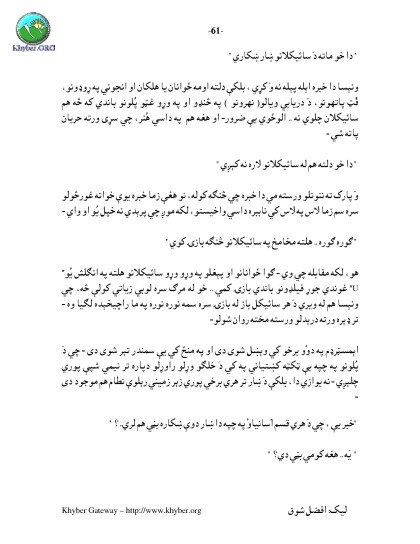 -61-
Khyber.ORG
"دا خو ماته دَ سائيکلانو ښار ښکاري "
ونيسا دا خبره ايله پيله نه وَ کړې ، بلکې دلته اومه ځوانان يا هلکان او انجونې په روډونو ،
فُټ پاتهونو ، دَ دريابي ويالو( نهرونو ) په څنډو او په وړو غټو پُلونو باندې که څه هم
سائيکلان چلوي نه .. الوځوي يې ضرور- او هغه هم په داسې هُنر، چې سړی ورته حريان
پاته شي-
"دا خو دلته هم له سائيکلانو لاره نه کېږي "
وَ پارک ته ننوتلو ورسته مې دا خبره چې څنګه کوله، نو هغې زما خبره يوې خواته غورځولو
سره سم زما لاس په لاس کې نابيره داسې واخيستو ، لکه موږ چې پرېدې نه خپل يُو او واې -
"ګوره ګوره .. هلته مخامخ په سائيکلانو څنګه بازۍ کوي "
هو ، لکه مقابله چې وي - ګوا ځوانانو او پېغلو په وړو وړو سائيکلانو هلته په انګلش يُو"
U" غوندې جوړ فيلډونو باندې بازۍ کمې .. خو له مرګ سره لوبې زياتې کولې څه، چې
ونيسا هم له ويرې دَ هر سائيکل باز له بازۍ سره سمه نوره نوره په ما راچيخېده لګيا وه -
تر ډېره ورته درېدلو ورسته مخته روان شولو-
ايمسټرډم په دوُو برخو کې وېشل شوی دی او په منځ کې يې سمندر تېر شوی دی - چې دَ
پُلونو په څېه يې ټکټه کښتيانې په کې دَ خلګو وړلو راوړلو دپاره تر نيمې شپې پورې
چليږي - نه يوازې دا ، بلکې دَ ښار تر هرې برخې پورې زېر زميني رېلوې نظام هم موجود دی
-
"خبر يې ، چې دَ هرې قسم آسانياوُ په څېه دا ښار دوې ښکاره بڼې هم لري.؟ "
"يَه .. هغه کومې بڼې دي؟ "
Khyber Gateway – http://www.khyber.org
ليک: افضل شوق